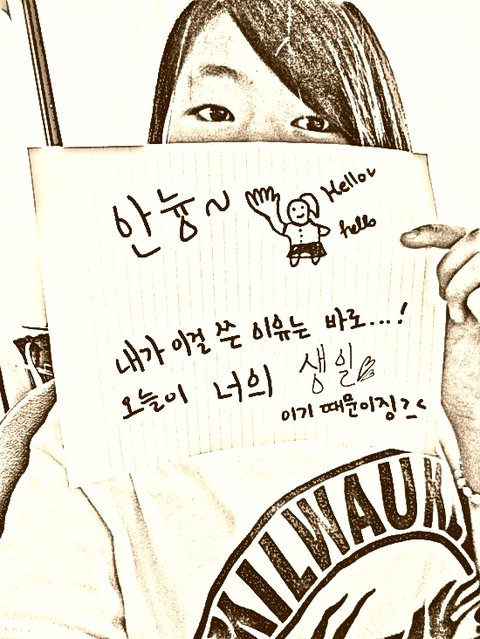 안늉~
Hello~
hello
내가 이걸 쓴 이유는 바로....!
오늘이 너의 생일
이기 때문이징><
MILWAUK